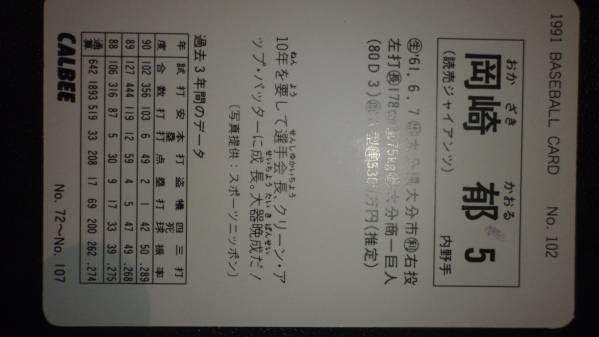 1991 BASEBALL CARD No. 102
おか ざき かおる
岡崎 郁 5
(読売ジャイアンツ) 内野手
㊤'61. 6. 7 大分市 右投
左打 178cm 75kg 大分商ー巨人
(80D 3) 万円(推定)
10年を要して選手会長、クリーン・ア
ップ・バッターに成長。大器晩成だ!
(写真提供:スポーツニッポン)
過去3年間のデータ
年度 試合 打数 安打 本塁打 打点 盗塁 犠打 四死球 三振 打率
90 102 356 103 6 49 2 1 42 50 .289
89 127 444 119 12 59 4 5 47 49 .268
88 106 316 87 5 30 9 17 33 39 .275
通算 642 1893 519 33 208 17 69 200 262 .274
CALBEE No. 72〜No. 107